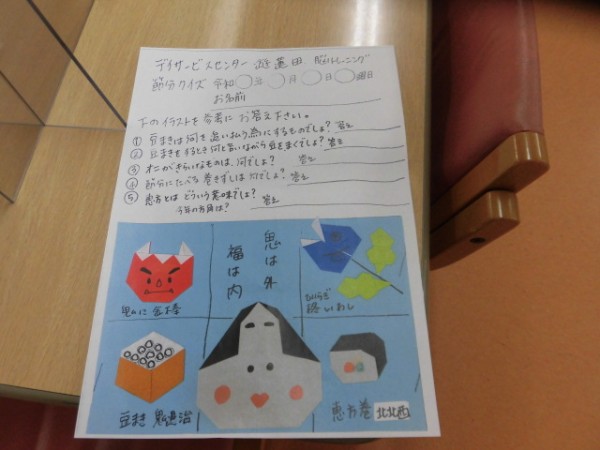 デイサービスセンター 遊蓮田 脳トレーニング
節分クイズ 令和○年○月○日○曜日
お名前
下のイラストを参考に お答え下さい。
① 豆まきは何を追い払う為にするものでしょ? 答え
② 豆まきをするとき何と言いながら豆をまくでしょ? 答え
③ オニがきらいなものは、何でしょ? 答え
④ 節分にたべる巻きずしは何でしょ? 答え
⑤ 恵方とは どういう意味でしょ? 答え
今年の方角は?
鬼は外
福は内
鬼に金棒
ひいらぎ
いわし
豆まき 鬼退治
恵方巻 北北西